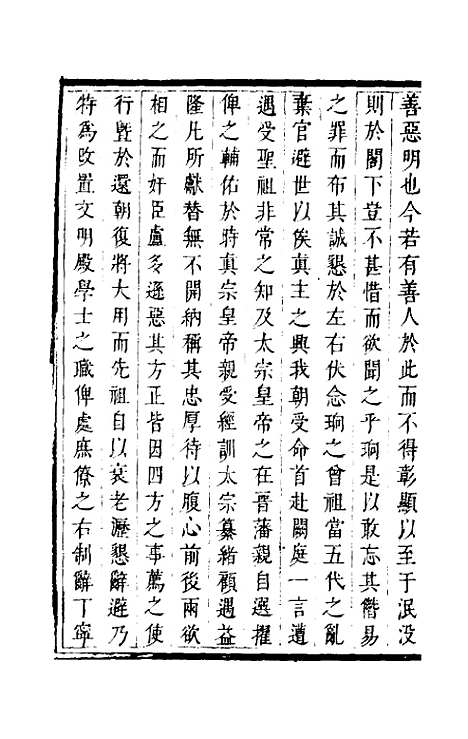 善惡明也今若有善人於此而不得彰顯以至于泯没
則於閣下豈不甚惜而欲聞之乎珦是以敢忘其僭易
之罪而布其誠懇於左右伏念珦之曾祖當五代之亂
棄官避世以俟真主之興我朝受命首赴闕庭一言遭
遇受聖祖非常之知及太宗皇帝之在晉藩親自選擢
俾之輔佑於時真宗皇帝親受經訓太宗纂緒顧遇益
隆凡所獻替無不開納稱其忠厚待以腹心前後兩欲
相之而奸臣盧多遜惡其方正皆因四方之事薦之使
行曁於還朝復將大用而先祖自以衰老瀝懇辭避乃
特為改置文明殿學士之職俾處庶僚之右制辭丁寧